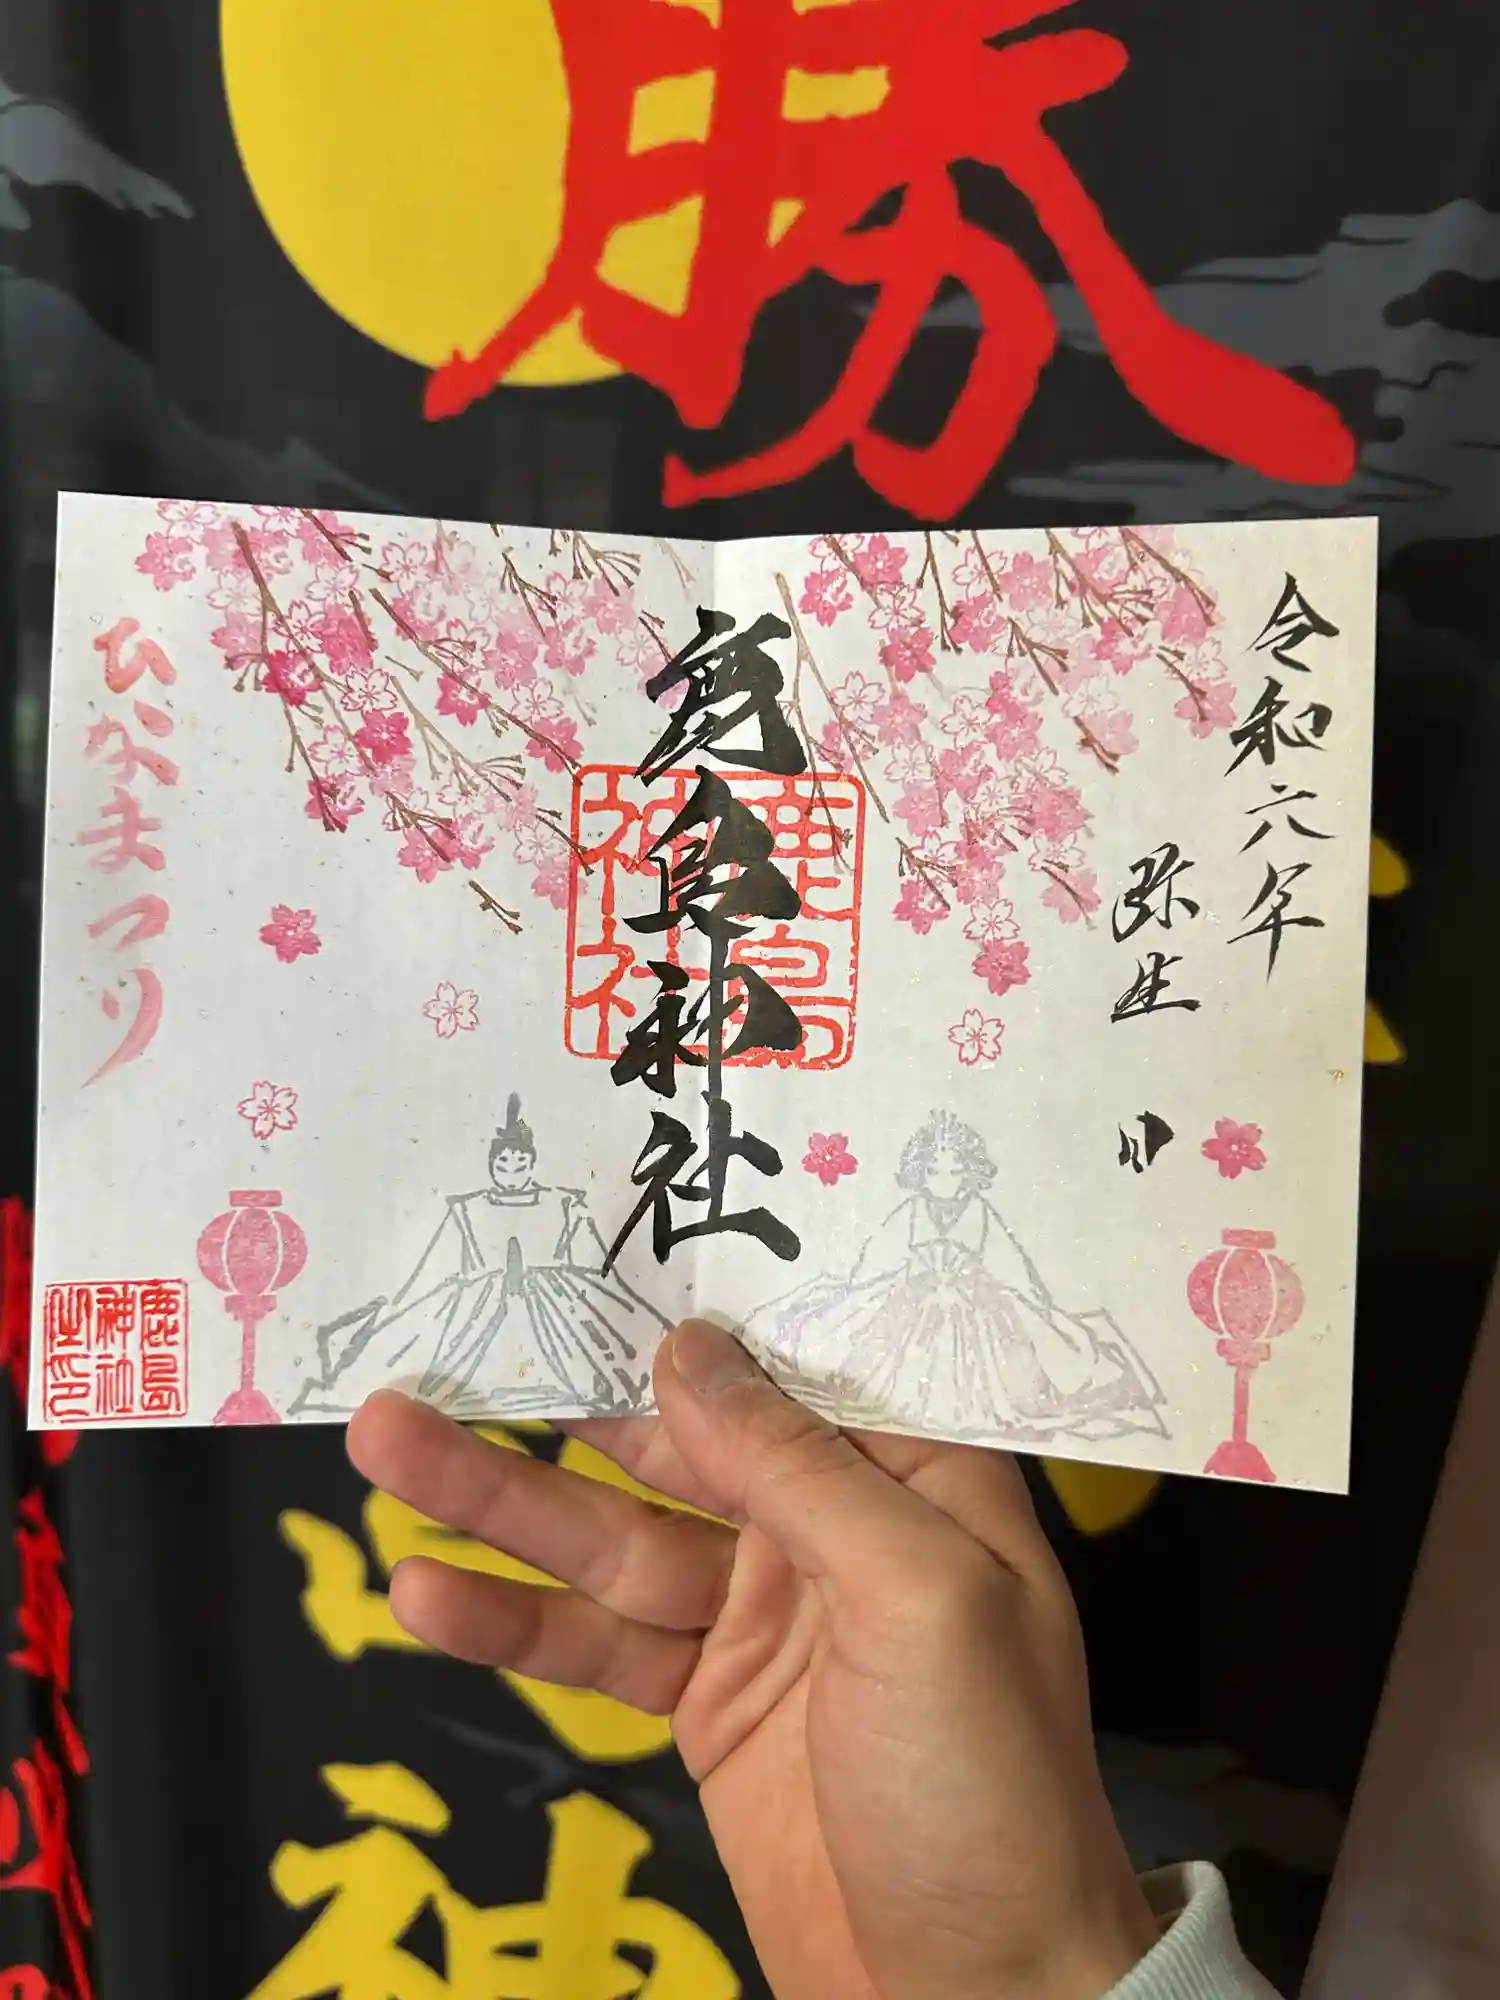 勝
令和六年
弥生
日
鹿島神社
鹿島
神社
ひなまつり
鹿島
神社
之印
神